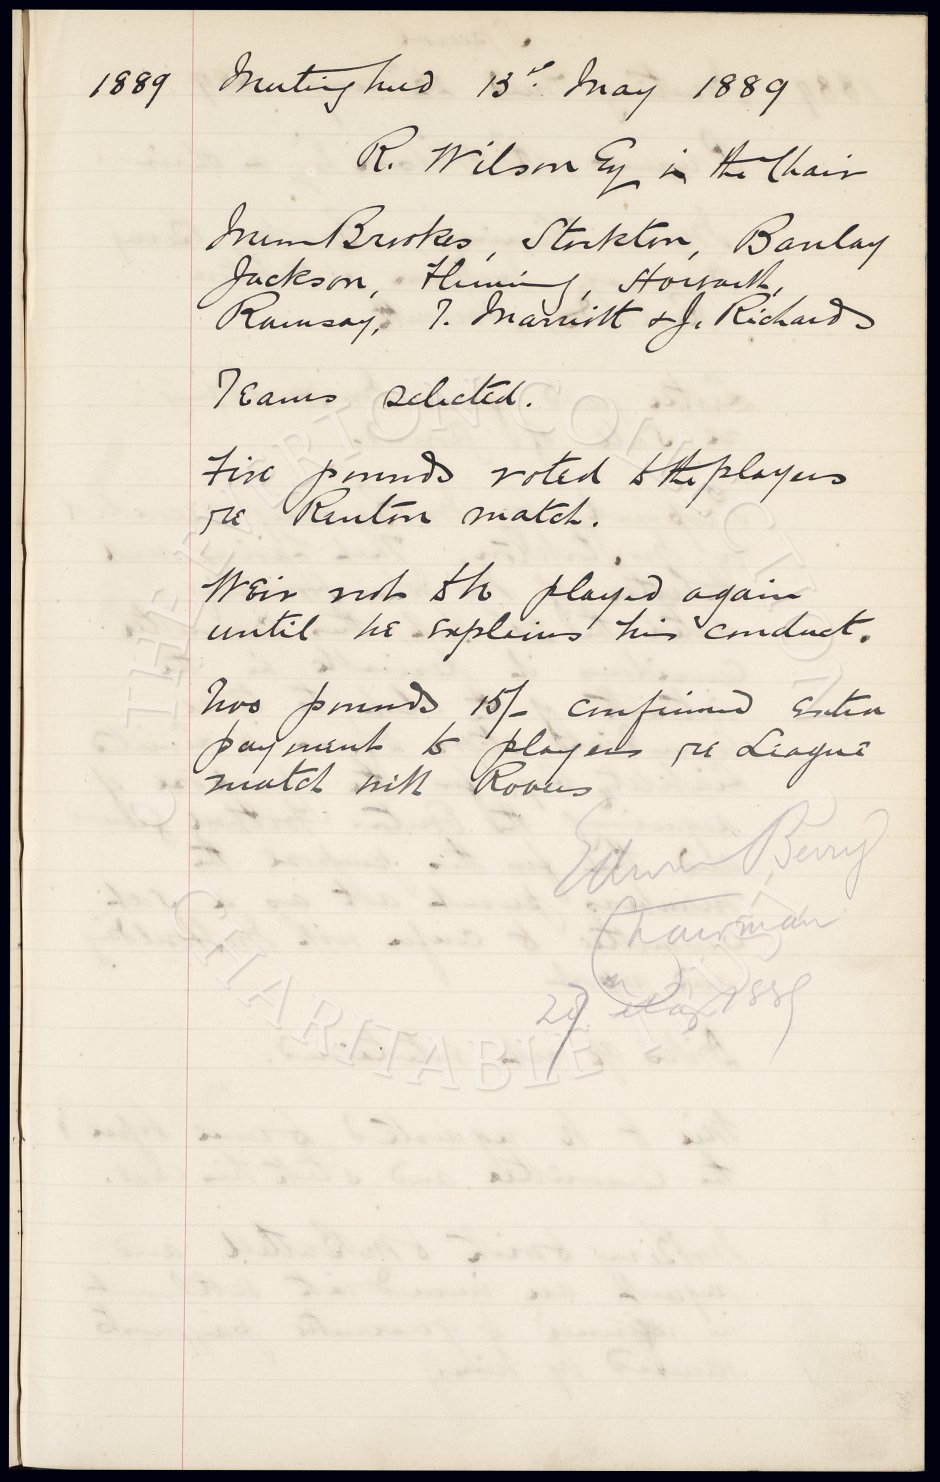 1889 Meeting held 13th May 1889
R. Wilson Esq in the Chair
Messrs Brookes, Stockton, Barclay
Jackson, Fleming, Howarth,
Ramsay, T. Marriott & J. Richards
Teams selected.
Five pounds voted to the players
re Renton match.
Weir not to be played again
until he explains his conduct.
Two pounds 15/- confirmed extra
payment to players re League
match with Rovers
Edwin Berry
Chairman
29 May 1889
© THE EVERTON COLLECTION
CHARITABLE TRUST